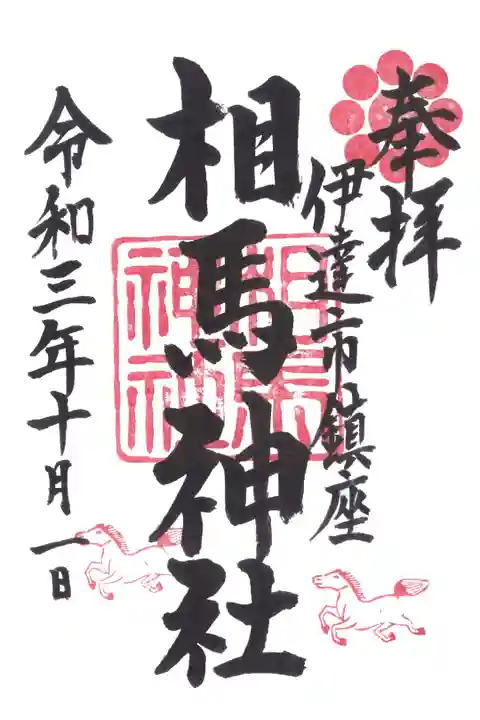 奉拝
伊達市鎮座
相馬神社
相馬神社
令和三年十月一日